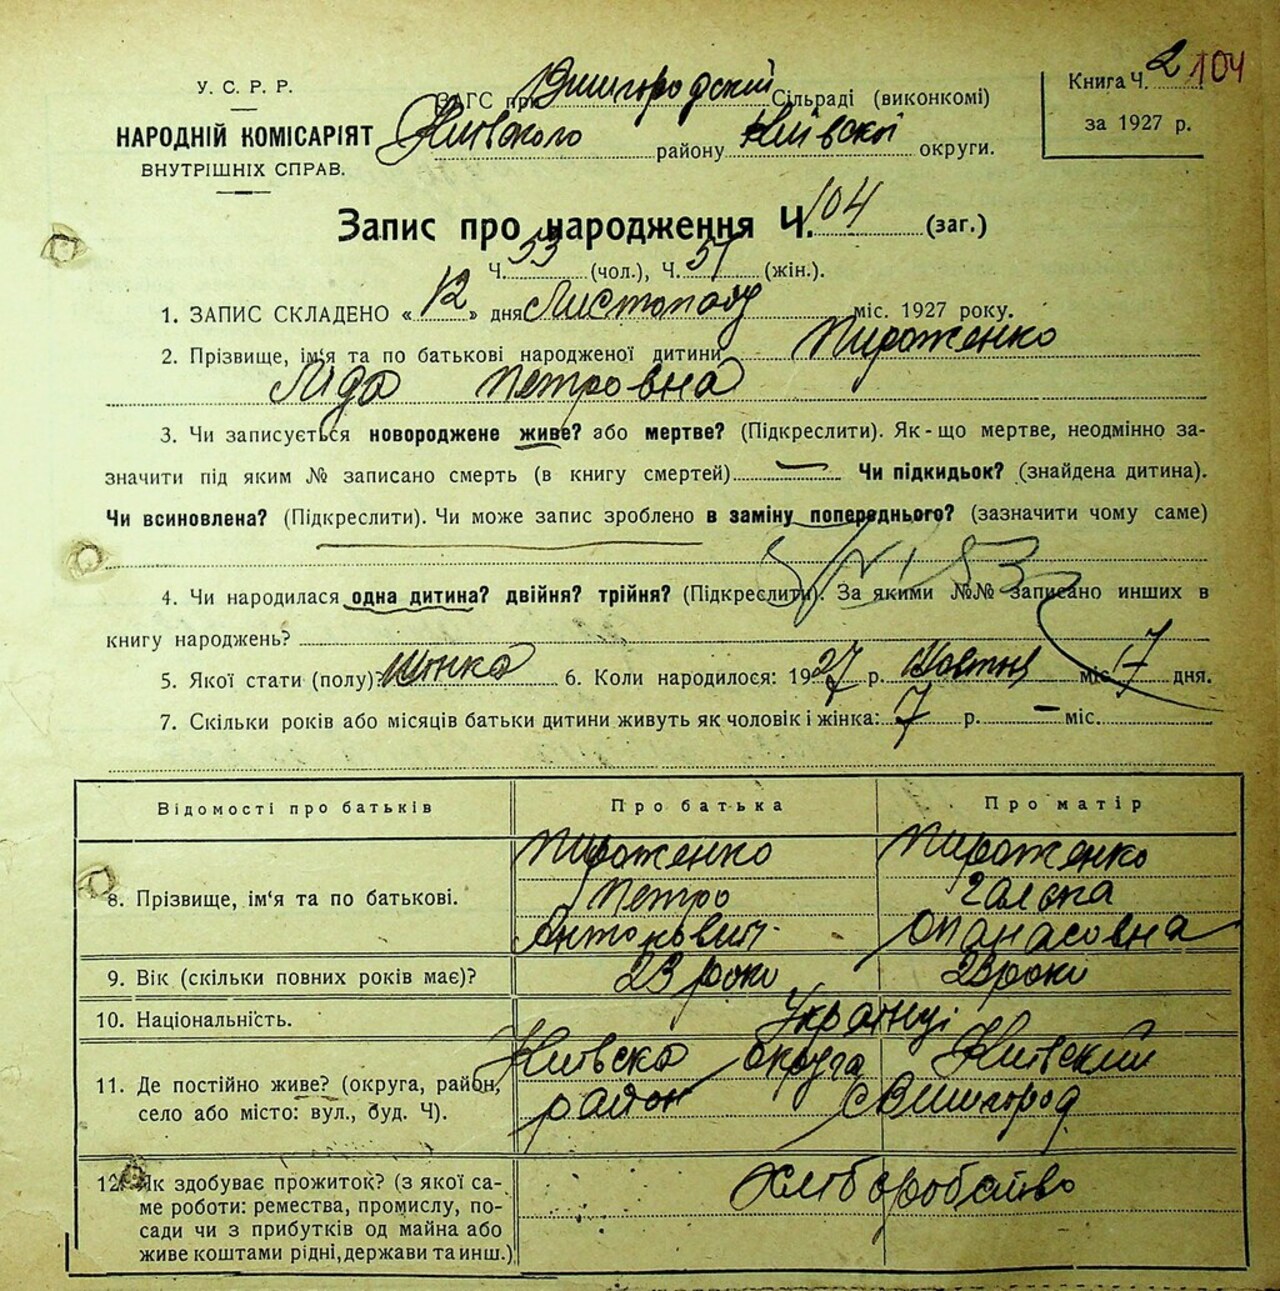 У. С. Р. Р.
НАРОДНІЙ КОМІСАРІЯТ
ВНУТРІШНІХ СПРАВ.
ЗАГС при Вишгородскій Сільраді (виконкомі)
Київского району Київскої округи.
Книга Ч. 2 104
за 1927 р.
Запис про народження Ч. 104 (заг.)
Ч. 53 (чол.), Ч. 51 (жін.).
1. ЗАПИС СКЛАДЕНО « 12 » дня Листопаду міс. 1927 року.
2. Прізвище, ім'я та по батькові народженої дитини Пироженко
Ліда Петровна
3. Чи записується новороджене живе? або мертве? (Підкреслити). Як-що мертве, неодмінно за-
значити під яким № записано смерть (в книгу смертей) — Чи підкидьок? (знайдена дитина).
Чи всиновлена? (Підкреслити). Чи може запис зроблено в заміну попереднього? (зазначити чому саме)
4. Чи народилася одна дитина? двійня? трійня? (Підкреслити). За якими №№ записано инших в
книгу народжень?
5. Якої стати (полу)? Жінка 6. Коли народилося: 1927 р. Жовтня міс. 7 дня.
7. Скільки років або місяців батьки дитини живуть як чоловік і жінка: 7 р. — міс.
Відомості про батьків Про батька Про матір
8. Прізвище, ім'я та по батькові. Пироженко Петро Антонович Пироженко Галена Опанасовна
9. Вік (скільки повних років має)? 23 роки 23 роки
10. Національність. Українці
11. Де постійно живе? (округа, район, Київска округа Київский
село або місто: вул., буд. Ч). район с Вишгород
12. Як здобуває прожиток? (з якої са- Хліборобство
ме роботи: ремества, промислу, по-
сади чи з прибутків од майна або
живе коштами рідні, держави та инш.)